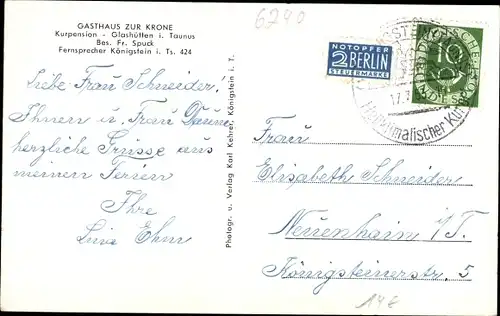 GASTHAUS ZUR KRONE
Kurpension - Glashütten i. Taunus
Bes. Fr. Spuck
Fernsprecher Königstein i. Ts. 424
6240
NOTOPFER
2 BERLIN
STEUERMARKE
DEUTSCHE BUNDESPOST
10
17.
Heilklimatischer Kur
Liebe Frau Schneider!
Ihnen u. Frau
herzliche Grüsse aus
meinen Ferien
Ihre
Photogr. u. Verlag Karl Kehrer, Königstein i. T.
Frau
Elisabeth Schneider
Neuenhain i/T.
Königsteinerstr. 5
14E